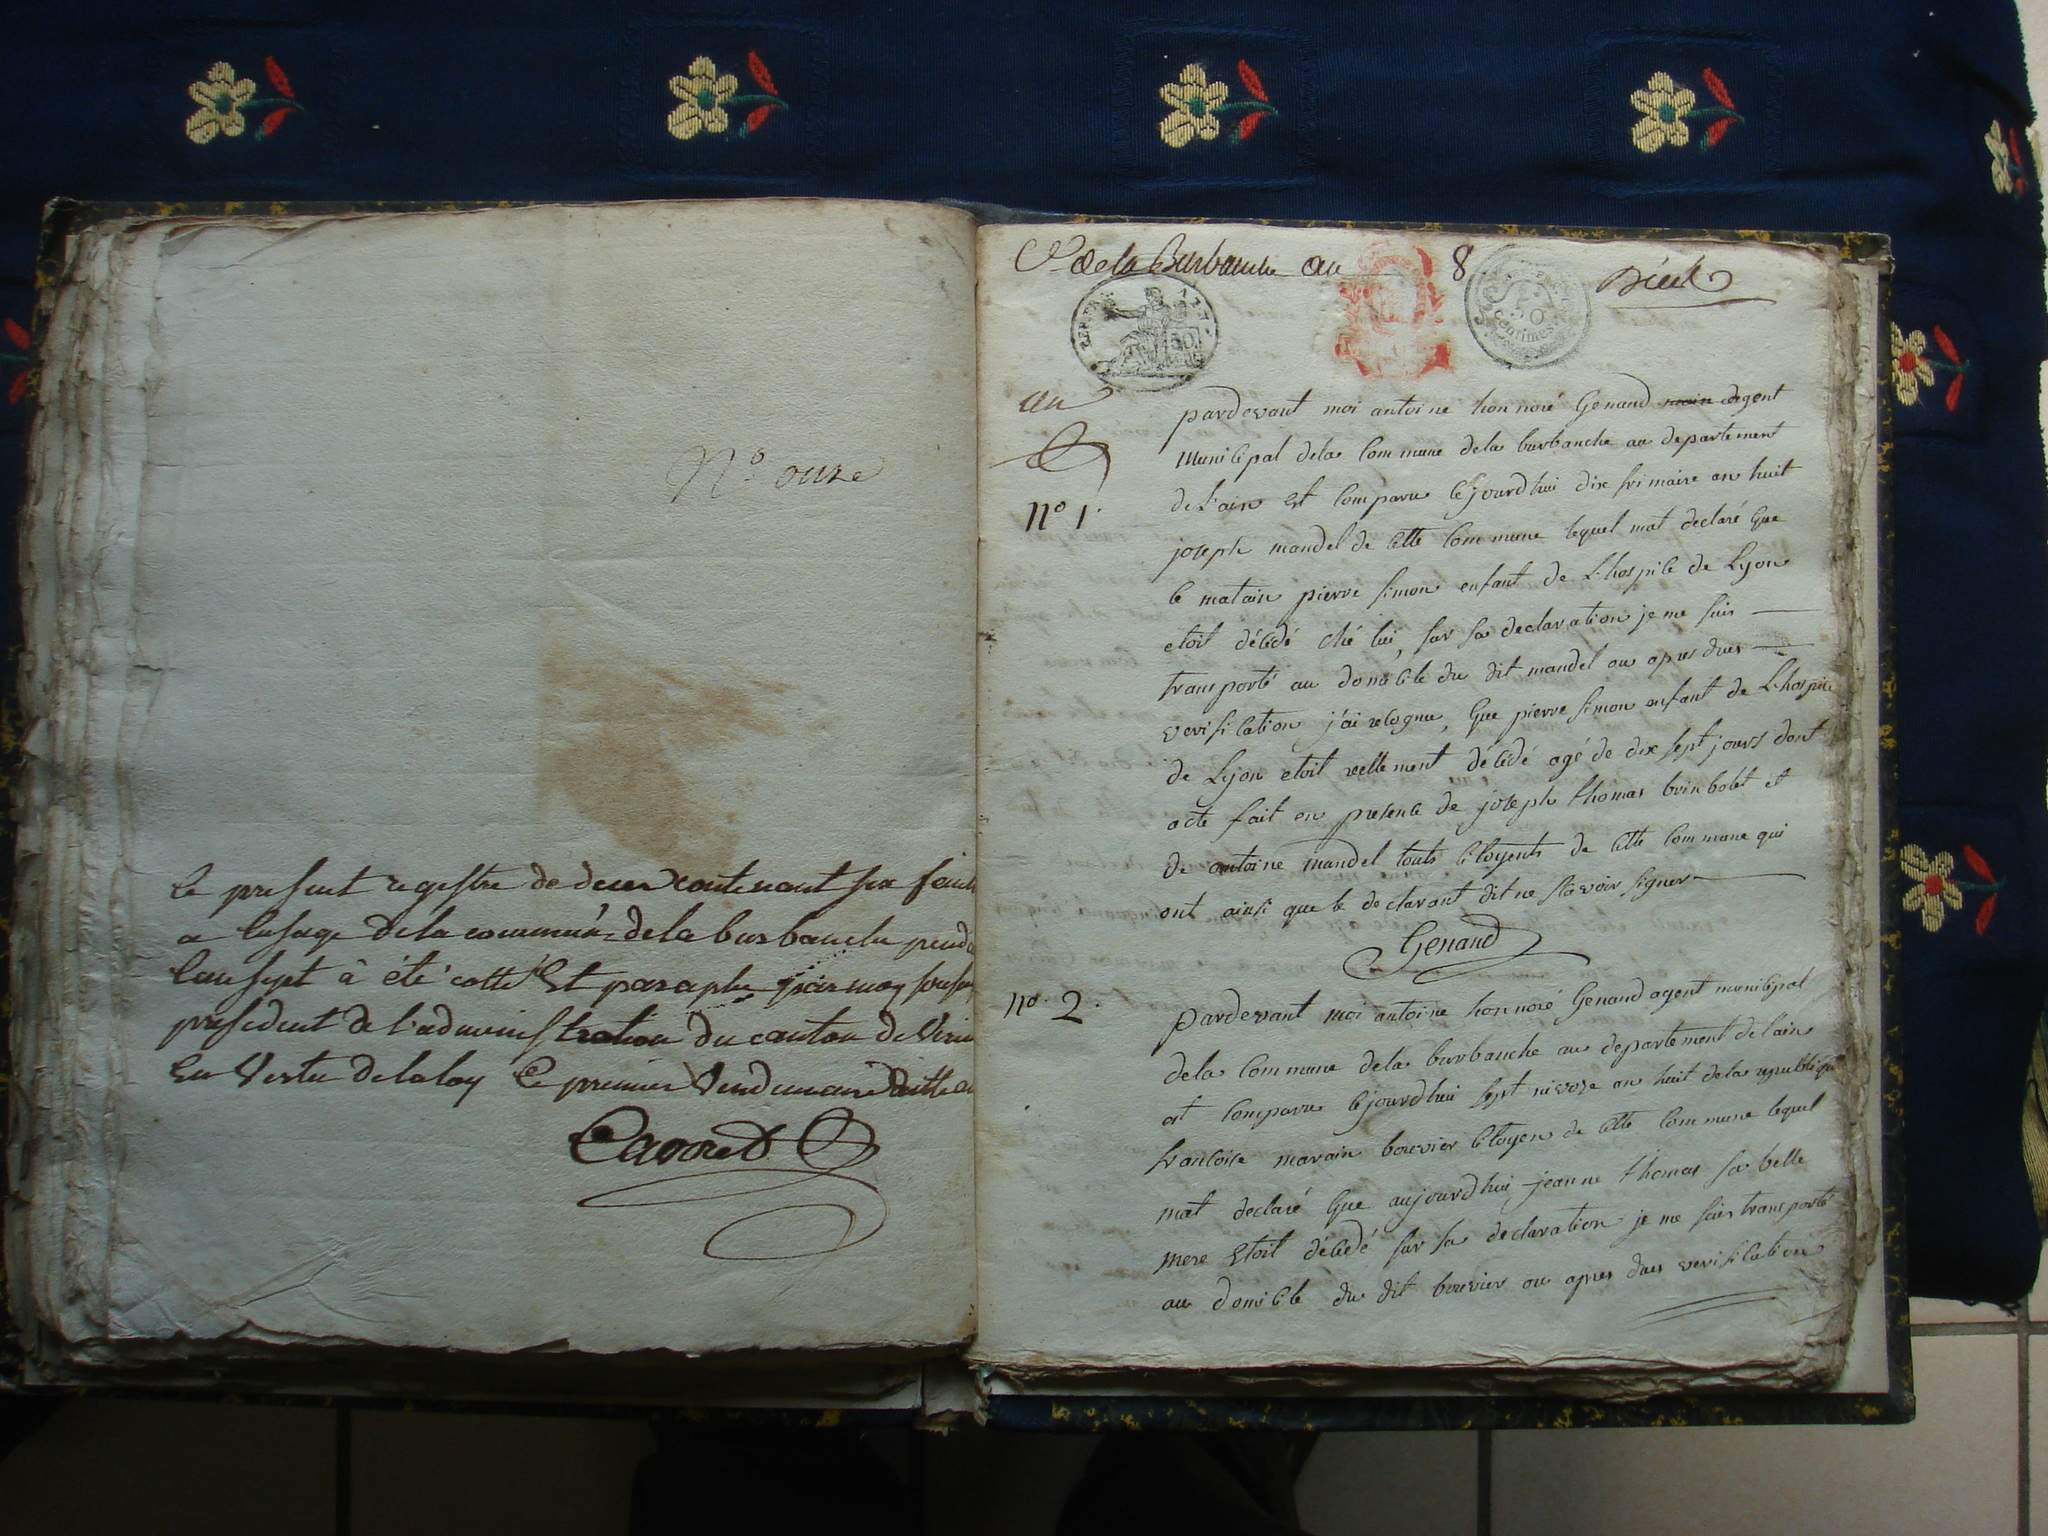 No onze
le present registre de deces contenant six feuil
a lusage de la commune de la burbanche pend
lan sept à été cotté Et paraphé par moy sous
president de l'administration du canton de Viri
En Vertu de la loy le premier Vendemiaire
de la Burbanche an 8
50
centimes
un
pardevant moi antoine honnoré Genand agent
municipal dela Commune dela burbanche au departement
No 1.
de l'ain est Comparu Cejourdhui dix frimaire an huit
joseph mandel de Cette Commune lequel mat declaré que
le matain pierre simon enfant de L'hospice de Lyon
etoit décédé ché lui, sur sa declaration je me suis
transporté au domicile du dit mandel ou apres dues
verification j'ai relognu, que pierre simon enfant de L'hospice
de Lyon etoit rellement décédé agé de dix sept jours dont
acte fait en presence de joseph thomas brinbolet et
de antoine mandel touts Citoyents de Cette Commune qui
ont ainsi que le declarant dit ne scavoir signer
Genand
no. 2.
pardevant moi antoine honnoré Genand agent municipal
dela Commune dela burbanche au departement de lain
est Comparu Cejourdhui sept nivose an huit dela republique
francoise marain bouvier Citoyen de Cette Commune lequel
mat declaré que aujourdhui jeanne thomas sa belle
mere etoit décédé sur sa declaration je me suis transporté
au domicile du dit bouvier ou apres dues verification